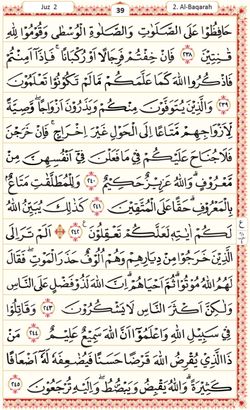 Juz 2
39
2. Al-Baqarah
حَافِظُوا عَلَى الصَّلَوَاتِ وَالصَّلَاةِ الْوُسْطَى وَقُومُوا لِلَّهِ
قَانِتِينَ ٢٣٨ فَإِنْ خِفْتُمْ فَرِجَالًا أَوْ رُكْبَانًا ۖ فَإِذَا أَمِنْتُمْ
فَاذْكُرُوا اللَّهَ كَمَا عَلَّمَكُمْ مَا لَمْ تَكُونُوا تَعْلَمُونَ
٢٣٩ وَالَّذِينَ يُتَوَفَّوْنَ مِنْكُمْ وَيَذَرُونَ أَزْوَاجًا وَصِيَّةً
لِأَزْوَاجِهِمْ مَتَاعًا إِلَى الْحَوْلِ غَيْرَ إِخْرَاجٍ ۚ فَإِنْ خَرَجْنَ
فَلَا جُنَاحَ عَلَيْكُمْ فِي مَا فَعَلْنَ فِي أَنْفُسِهِنَّ مِنْ
مَعْرُوفٍ ۗ وَاللَّهُ عَزِيزٌ حَكِيمٌ ٢٤٠ وَلِلْمُطَلَّقَاتِ مَتَاعٌ
بِالْمَعْرُوفِ ۖ حَقًّا عَلَى الْمُتَّقِينَ ٢٤١ كَذَٰلِكَ يُبَيِّنُ اللَّهُ
لَكُمْ آيَاتِهِ لَعَلَّكُمْ تَعْقِلُونَ ٢٤٢ أَلَمْ تَرَ إِلَى
الَّذِينَ خَرَجُوا مِنْ دِيَارِهِمْ وَهُمْ أُلُوفٌ حَذَرَ الْمَوْتِ فَقَالَ
لَهُمُ اللَّهُ مُوتُوا ثُمَّ أَحْيَاهُمْ ۚ إِنَّ اللَّهَ لَذُو فَضْلٍ عَلَى النَّاسِ
وَلَٰكِنَّ أَكْثَرَ النَّاسِ لَا يَشْكُرُونَ ٢٤٣ وَقَاتِلُوا
فِي سَبِيلِ اللَّهِ وَاعْلَمُوا أَنَّ اللَّهَ سَمِيعٌ عَلِيمٌ ٢٤٤ مَنْ
ذَا الَّذِي يُقْرِضُ اللَّهَ قَرْضًا حَسَنًا فَيُضَاعِفَهُ لَهُ أَضْعَافًا
كَثِيرَةً ۚ وَاللَّهُ يَقْبِضُ وَيَبْسُطُ وَإِلَيْهِ تُرْجَعُونَ ٢٤٥